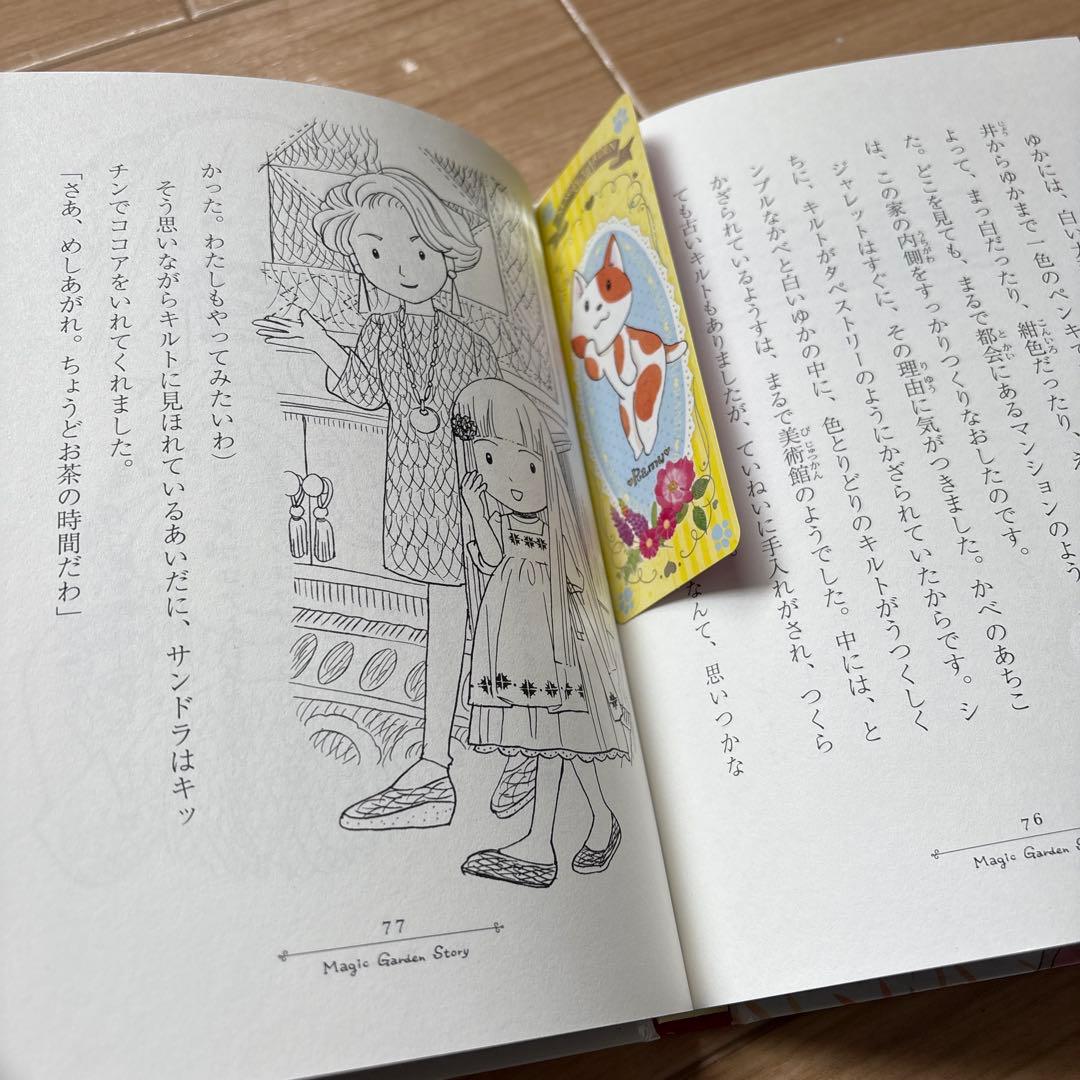 ゆかには、白い
井からゆかまで一色のペンキで
よって、まっ白だったり、紺色だったり、
た。どこを見ても、まるで都会にあるマンションのよう
は、この家の内側をすっかりつくりなおしたのです。
ジャレットはすぐに、その理由に気がつきました。かべのあちこ
ちに、キルトがタペストリーのようにかざられていたからです。シ
ンプルなかべと白いゆかの中に、色とりどりのキルトがうつくしく
かざられているようすは、まるで美術館のようでした。中には、と
ても古いキルトもありましたが、ていねいに手入れがされ、つくら
なんて、思いつかな
76
Magic Garden
Ramu
かった。わたしもやってみたいわ）
そう思いながらキルトに見ほれているあいだに、サンドラはキッ
チンでココアをいれてくれました。
「さあ、めしあがれ。ちょうどお茶の時間だわ」
77
Magic Garden Story